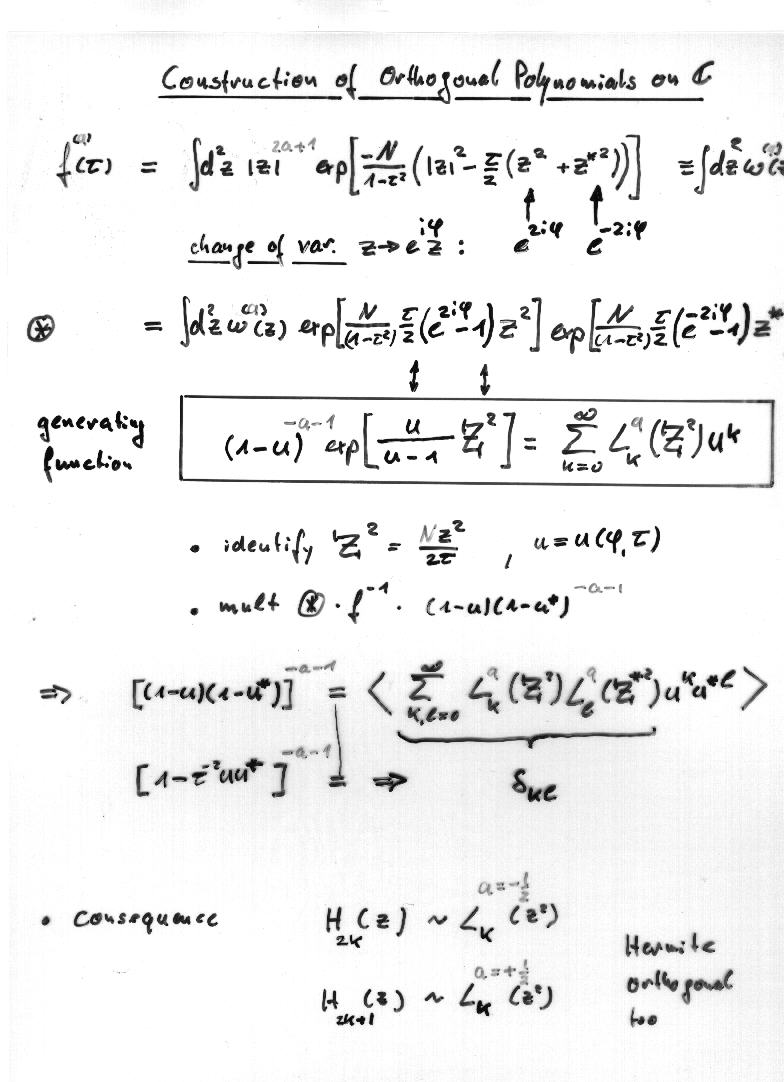 Construction of Orthogonal Polynomials on ℂ
f^{(a)}(τ) = ∫d²z |z|^{2a+1} exp[-N/(1-τ²) (|z|² - τ/2 (z² + z*²))] ≡ ∫dz² ω^{(a)}(z
change of var. z → e^{iφ} z : e^{2iφ} e^{-2iφ}
⊛ = ∫d²z ω^{(a)}(z) exp[N/(1-τ²) τ/2 (e^{2iφ}-1) z²] exp[N/(1-τ²) τ/2 (e^{-2iφ}-1) z*
generating function
(1-u)^{-a-1} exp[u/(u-1) Z²] = Σ_{k=0}^{∞} L_k^a (Z²) u^k
• identify Z² = Nz²/2τ , u = u(φ,τ)
• mult ⊛ · f^{-1} · (1-u)(1-u*)^{-a-1}
⇒ [(1-u)(1-u*)]^{-a-1} = ⟨ Σ_{k,l=0}^{∞} L_k^a (Z²) L_l^a (Z*²) u^k u*^l ⟩
[1-τ^{-2}uu*]^{-a-1} = ⇒ δ_{kl}
• Consequence H_{2k}(z) ~ L_k^{a=-1/2} (z²)
H_{2k+1}(z) ~ L_k^{a=+1/2} (z²)
Hermite
orthogonal
too